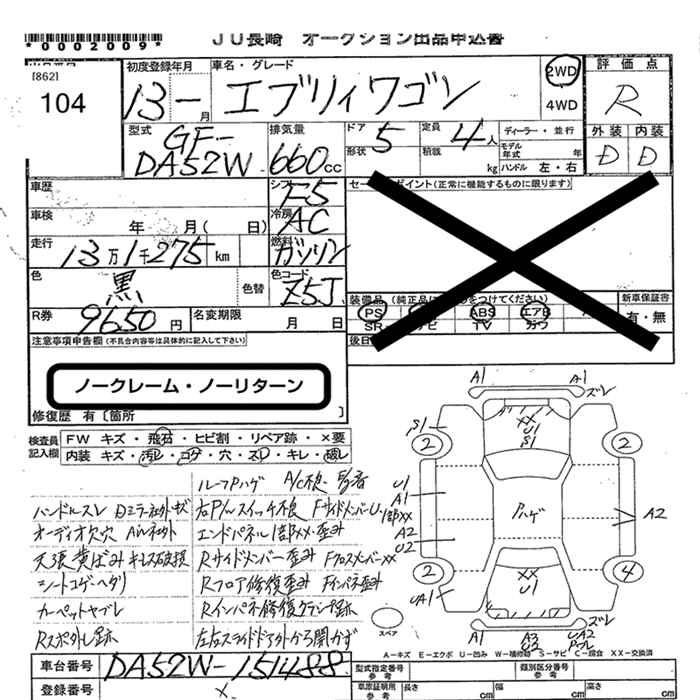 *0002009*
JU長崎 オークション出品申込書
[862]
104
初度登録年月
13-月
車名・グレード
エブリィワゴン
2WD
4WD
評価点
R
外装 内装
D D
型式
GF-
DA52W
排気量
660cc
ドア
形状
5
定員
積載
4人
kg
ディーラー・並行
モデル
年式
年
ハンドル 左・右
車歴
シフト
F5
セールスポイント(正常に機能するものに限ります)
車検
年 月( 日)
冷房
AC
走行
13万1千275km
燃料
ガソリン
色
黒
色替
色コード
Z5J
装備品 (純正品に○をつけてください)
新車保証書
PS
ABS
エアB
有・無
SR
ナビ
TV
R券
9650円
名変期限
月 日
後日
注意事項申告欄(不具合内容等は具体的に記入して下さい)
ノークレーム・ノーリターン
修復歴 有〔箇所 〕
検査員
記入欄
FW キズ・飛石・ヒビ割・リペア跡・×要
内装 キズ・汚れ・コゲ・穴・スレ・キレ・破レ
ルーフPハゲ A/C不良 異音
ハンドルスレ Dミラー社外キズ
右P/Wスイッチ不良 FサイドメンバーU1
1部XX
オーディオ欠穴 AW社外
エンドパネル1部XX・歪み
天張黄ばみ キーレス破損
Rサイドメンバー歪み FクロスメンバーXX
シートコゲヘタリ
Rフロア修復歪み Fインパネ歪み
カーペットヤブレ
Rインパネ修復クランプ跡
Rスポ外し跡
左右スライドドア外から開かず
A1
A1
ズレ
S1
XX
U1
S1
2
2
U1
A1
Pハゲ
A2
A2
U2
2
4
XX
U1
UA1
ズレ
U1
A3
U2
UA2
スペア
A-キズ E-エクボ U-凹み W-補修跡 S-サビ C-腐食 XX-交換済
車台番号
DA52W-151488
登録番号
型式指定番号
参考
類別区分番号
参考
車庫証明用
参考
長さ
cm
幅
cm
高さ
cm